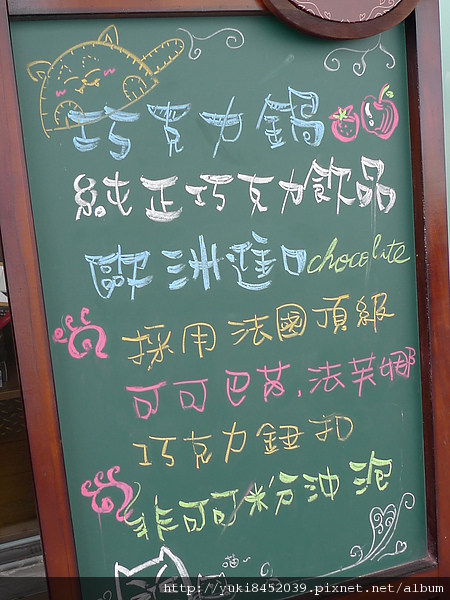 巧克力鍋
純正巧克力飲品
歐洲進口chocolate
採用法國頂級
可可巴芮,法芙娜
巧克力鈕扣
非可可粉沖泡
http://yuki8452039.pixnet.net/album